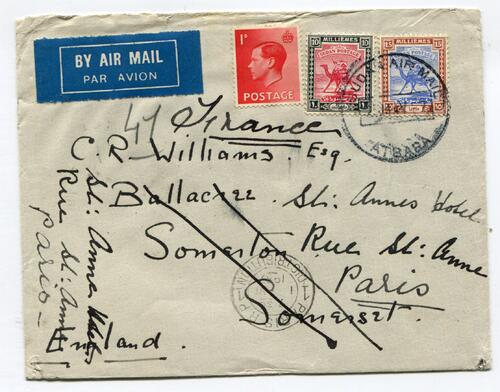 BY AIR MAIL
PAR AVION
1D
POSTAGE
10 MILLIEMES 10
SUDAN POSTAGE
15 MILLIEMES 15
SUDAN POSTAGE
SUDAN AIR MAIL
ATBARA
41 France
C. R. Williams. Esq.
Ballacree St: Annes Hotel
Somerton Rue St: Anne
Paris
Somerset.
England.
St: Annes Hotel
Rue St: Anne
Paris